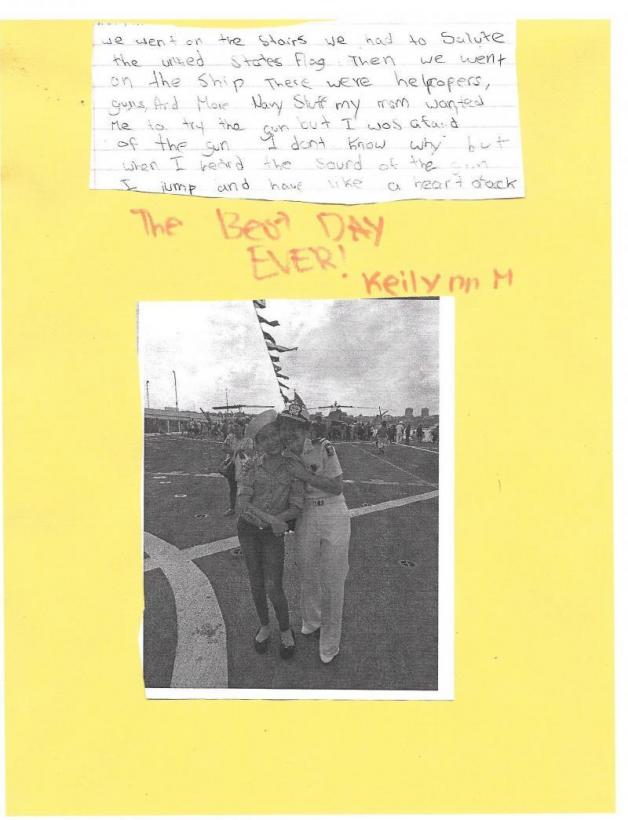 we went on the stairs we had to Salute
the united States Flag. Then we went
on the Ship There were helpropers,
guns, And More Navy Stuff my mom wanted
Me to try the gun but I was afaid
of the gun I dont know why but
when I heard the sound of the gun
I jump and have like a heart atack
The Best DAY
EVER!
Keilynn M